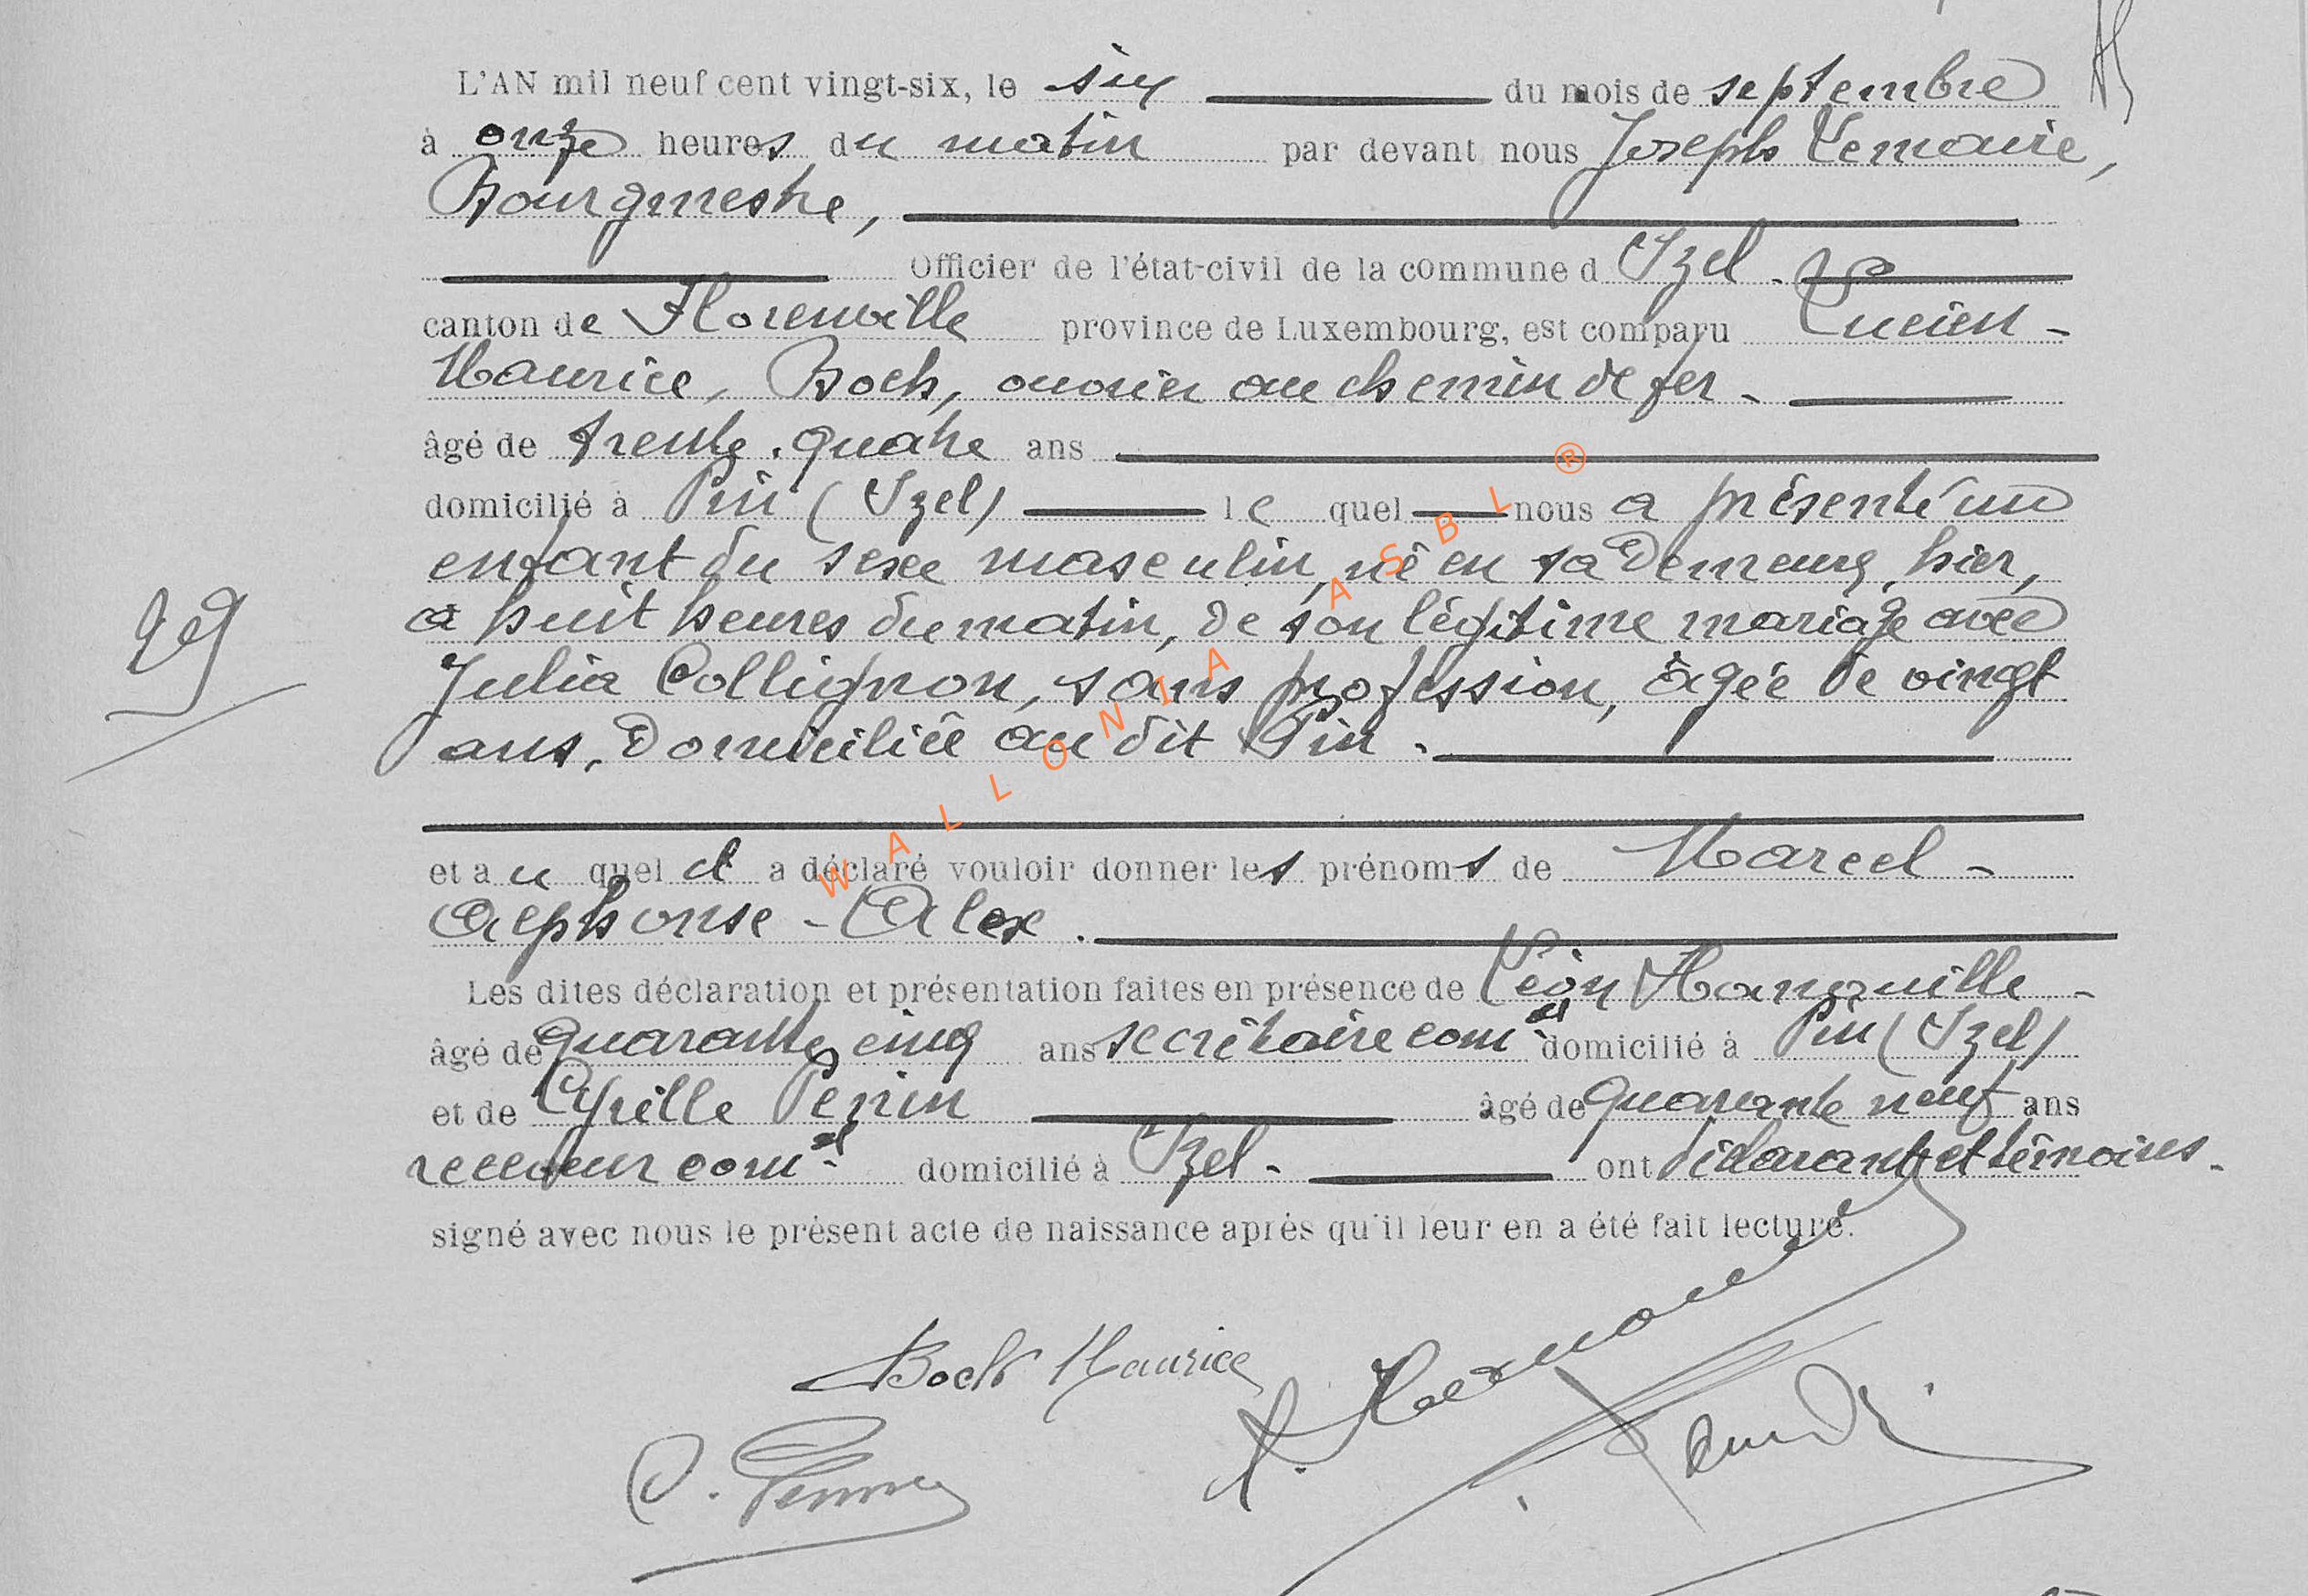 L'AN mil neuf cent vingt-six, le six du mois de septembre
à onze heures du matin par devant nous Joseph Lemaire,
Bourgmestre,
Officier de l'état-civil de la commune d Izel -
canton de Florenville province de Luxembourg, est comparu Lucien -
Maurice, Boch, ouvrier au chemin de fer -
âgé de trente-quatre ans
domicilié à Pin (Izel) le quel nous a présenté un
enfant du sexe masculin, né en sa demeure, hier,
à huit heures du matin, de son légitime mariage avec
Julia Collignon, sans profession, âgée de vingt
ans, domiciliée au dit Pin.
et au quel il a déclaré vouloir donner les prénoms de Marcel -
Alphonse - Alex.
Les dites déclaration et présentation faites en présence de Léon
âgé de quarante cinq ans secrétaire com.al domicilié à Pin (Izel)
et de Cyrille Penin âgé de quarante neuf ans
receveur com.al domicilié à Izel - ont déclarant et témoins.
signé avec nous le présent acte de naissance après qu'il leur en a été fait lecture.
99
WALLONIA ASBL ®
Boch Maurice